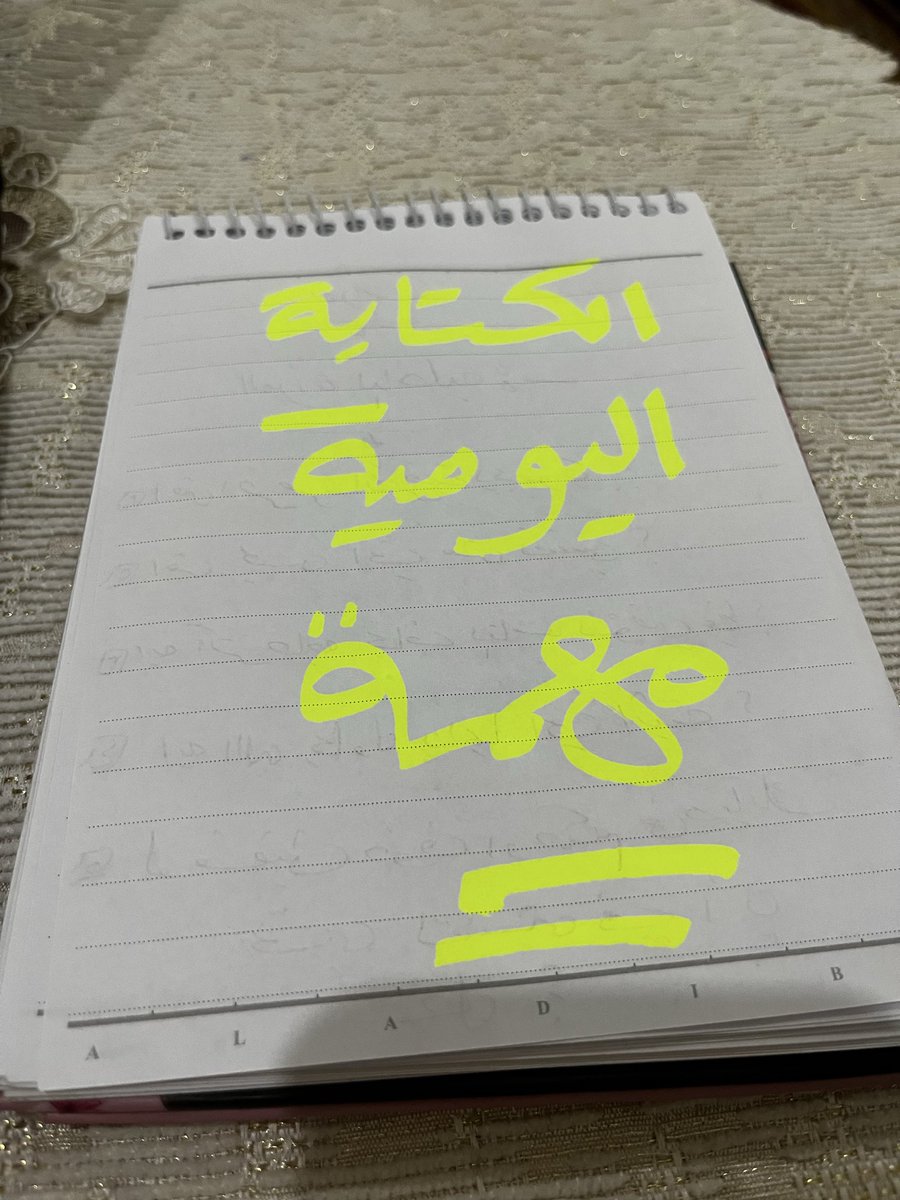 الكتابة
اليومية
مهمة
A L A D I B